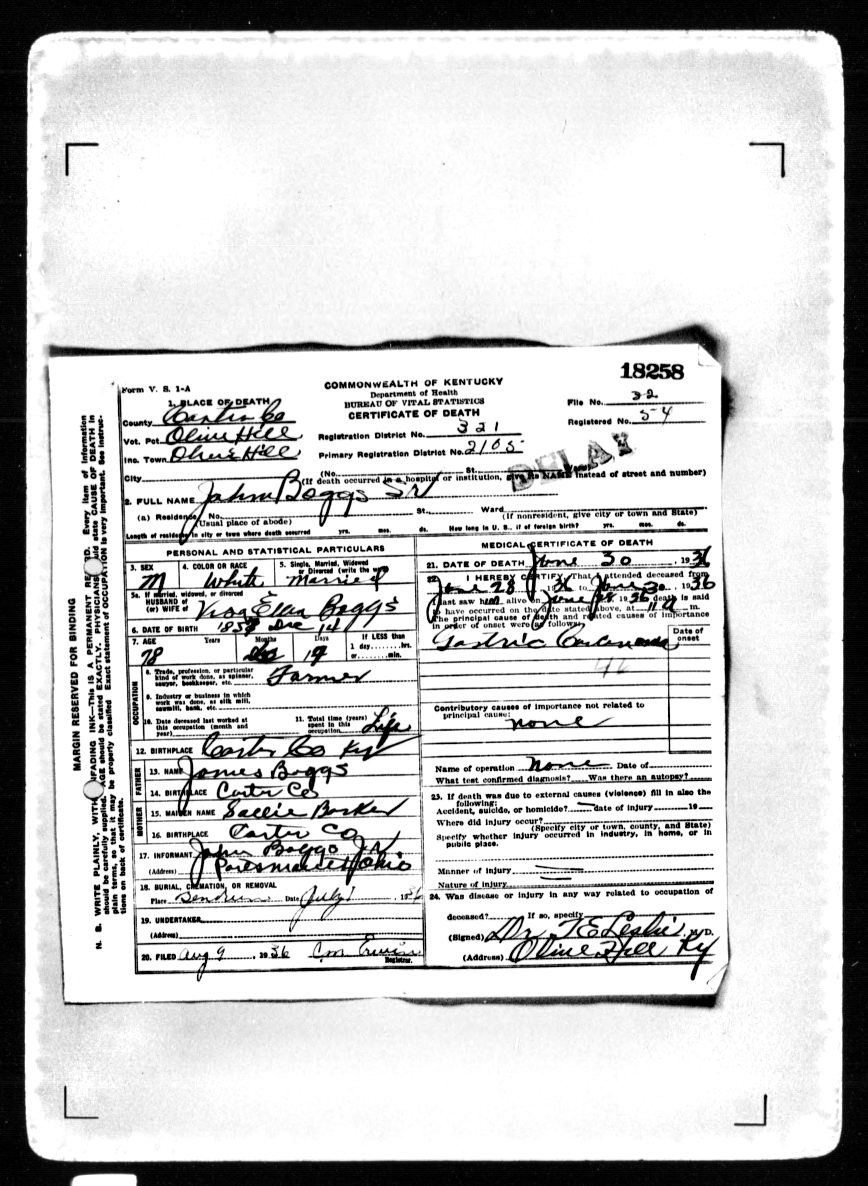 18258
Form V. S. 1-A
COMMONWEALTH OF KENTUCKY
Department of Health
BUREAU OF VITAL STATISTICS
CERTIFICATE OF DEATH
File No. 32
Registered No. 54
1. PLACE OF DEATH
County Carter Co
Vot. Pct. Olive Hill
Inc. Town Olive Hill
City
Registration District No. 321
Primary Registration District No. 2105
DELAY
(No. St. Ward)
(If death occurred in a hospital or institution, give its NAME instead of street and number)
2. FULL NAME John Boggs Sr
(a) Residence, No. St. Ward
(Usual place of abode) (If nonresident, give city or town and State)
Length of residence in city or town where death occurred yrs. mos. ds. How long in U. S., if of foreign birth? yrs. mos. ds.
PERSONAL AND STATISTICAL PARTICULARS
3. SEX M
4. COLOR OR RACE White
5. Single, Married, Widowed or Divorced (write the word) Married
5a. If married, widowed, or divorced
HUSBAND of
(or) WIFE of Ellen Boggs
6. DATE OF BIRTH Dec 14
7. AGE Years Months Days If LESS than
78 1 day hrs.
or min.
OCCUPATION
8. Trade, profession, or particular
kind of work done, as spinner,
sawyer, bookkeeper, etc. Farmer
9. Industry or business in which
work was done, as silk mill,
sawmill, bank, etc.
10. Date deceased last worked at
this occupation (month and
year)
11. Total time (years)
spent in this
occupation Life
12. BIRTHPLACE Carter Co Ky
FATHER
13. NAME James Boggs
14. BIRTHPLACE Carter Co
MOTHER
15. MAIDEN NAME Sallie Barker
16. BIRTHPLACE Carter Co
17. INFORMANT John Boggs Jr
(Address) Ohio
18. BURIAL, CREMATION, OR REMOVAL
Place Date July 1 1936
19. UNDERTAKER
(Address)
20. FILED Aug 9, 1936 Erwin
Registrar.
MEDICAL CERTIFICATE OF DEATH
21. DATE OF DEATH June 30, 1936
22. I HEREBY CERTIFY, That I attended deceased from
June 28 1936 to June 30, 1936
I last saw him alive on June 28 1936 death is said
to have occurred on the date stated above, at 11 a m.
The principal cause of death and related causes of importance
in order of onset were as follows:
Date of onset
Gastric Carcinoma
46
Contributory causes of importance not related to
principal cause:
none
Name of operation none Date of
What test confirmed diagnosis? Was there an autopsy?
23. If death was due to external causes (violence) fill in also the
following:
Accident, suicide, or homicide? date of injury 19
Where did injury occur?
(Specify city or town, county, and State)
Specify whether injury occurred in industry, in home, or in
public place.
Manner of injury
Nature of injury
24. Was disease or injury in any way related to occupation of
deceased? If so, specify
(Signed) Dr Leslie M.D.
(Address) Olive Hill Ky
MARGIN RESERVED FOR BINDING
N. B. WRITE PLAINLY, WITH UNFADING INK—This is a PERMANENT RECORD. Every item of information
should be carefully supplied. AGE should be stated EXACTLY. PHYSICIANS should state CAUSE OF DEATH in
plain terms, so that it may be properly classified. Exact statement of OCCUPATION is very important. See instruc-
tions on back of certificate.